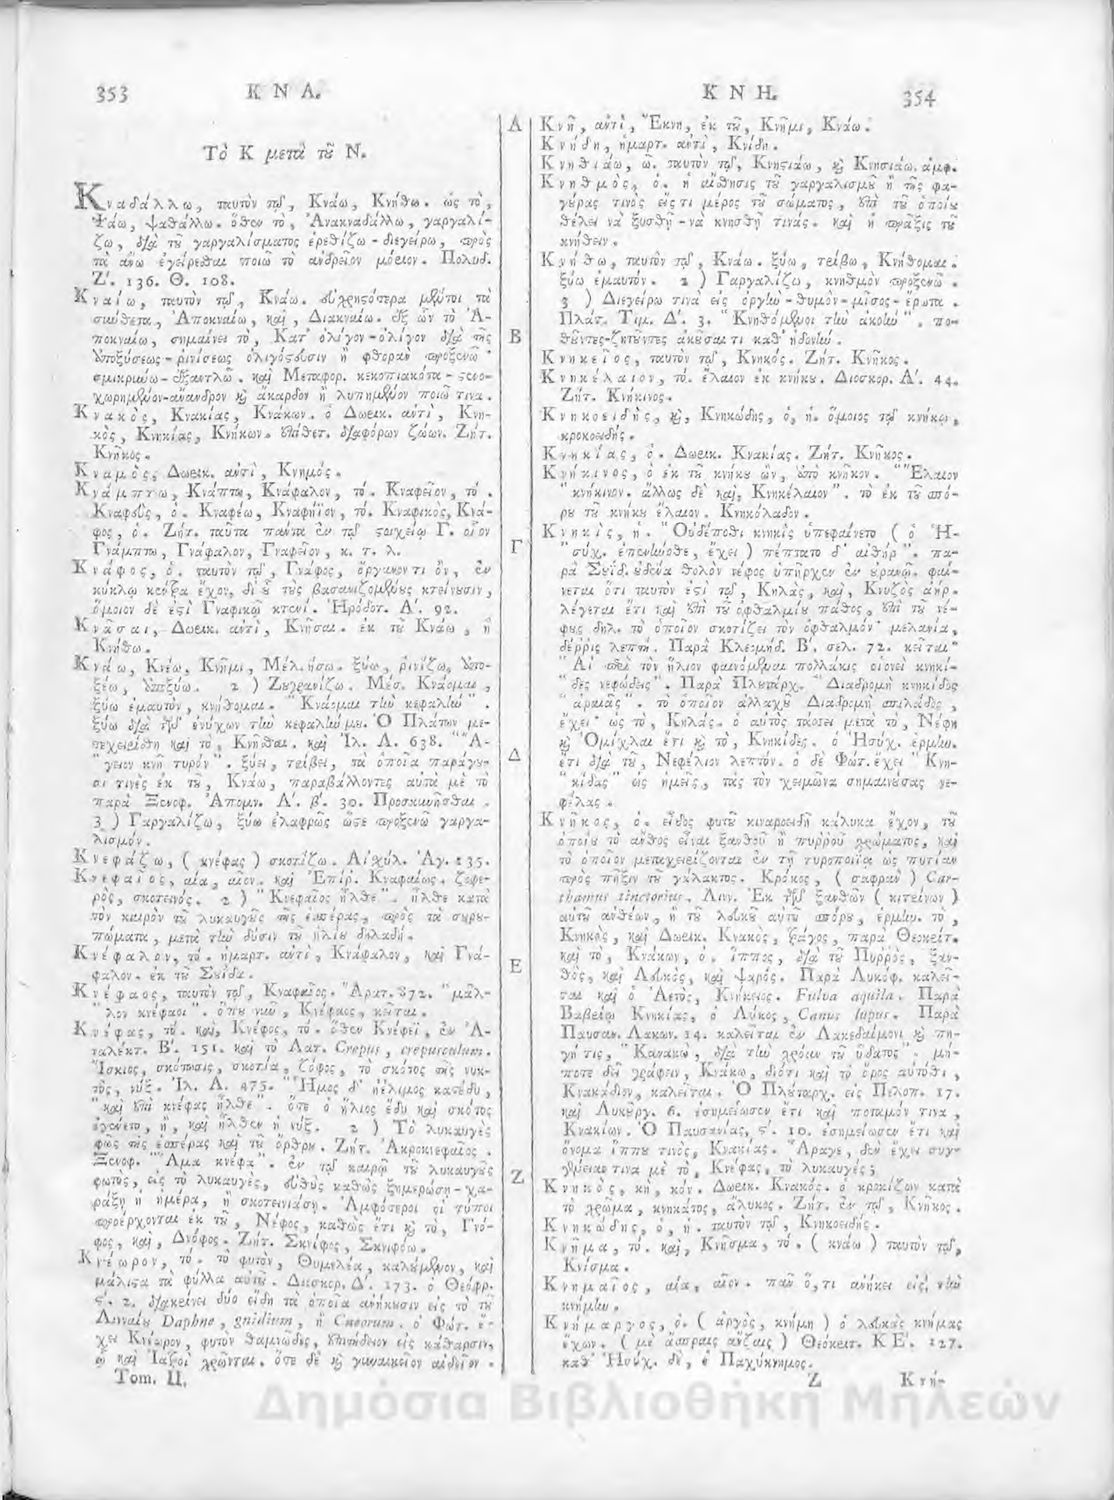 353 Κ Ν Α.
Τὸ Κ μετὰ τοῦ Ν.
Κναδάλλω, ταυτὸν τῷ, Κνάω, Κνήθω. ὡς τὸ,
Ψάω, ψαθάλλω. ὅθεν τὸ, Ἀνακναδάλλω, γαργαλί-
ζω, διὰ τοῦ γαργαλίσματος ἐρεθίζω - διεγείρω, πρὸς
τὰ ἄνω ἐγείρεσθαι ποιῶ τὸ ἀνδρεῖον μόριον. Πολυδ.
Ζ΄. 136. Θ. 108.
Κναίω, ταυτὸν τῷ, Κνάω. εὐχρηστότερα μέντοι τὰ
σύνθετα, Ἀποκναίω, καὶ, Διακναίω. ἐξ ὧν τὸ Ἀ-
ποκναίω, σημαίνει τὸ, Κατ' ὀλίγον - ὀλίγον διὰ τῆς
ὑποξύσεως - ῥινίσεως ὀλιγόστευσιν ἢ φθορὰν προξενῶ
σμικρύνω - ἐξαντλῶ. καὶ Μεταφορ. κεκοπιακότα - στενο-
χωρημένον - ἄνανδρον καὶ ἄκαρδον ἢ λυπημένον ποιῶ τινα.
Κνακὸς, Κνακίας, Κνάκων. ὁ Δωρικ. ἀντὶ, Κνη-
κὸς, Κνηκίας, Κνήκων. ἐπίθετ. διαφόρων ζώων. Ζήτ.
Κνῆκος.
Κναμὸς, Δωρικ. ἀντὶ, Κνημός.
Κνάμπτω, Κνάπτω, Κνάφαλον, τό. Κναφεῖον, τό.
Κναφεὺς, ὁ. Κναφέω, Κναφήϊον, τό. Κναφικὸς, Κνά-
φος, ὁ. Ζήτ. ταῦτα πάντα ἐν τῷ στοιχείῳ Γ. οἷον
Γνάμπτω, Γνάφαλον, Γναφεῖον, κ. τ. λ.
Κνάφος, ὁ. ταυτὸν τῷ, Γνάφος, ὄργανόν τι ὂν, ἐν
κύκλῳ κέντρα ἔχον, δι' οὗ τοὺς βασανιζομένους κτείνουσιν,
ὅμοιον δέ ἐστι Γναφικῷ κτενί. Ἡρόδοτ. Α΄. 92.
Κνᾶσαι, Δωρικ. ἀντὶ, Κνῆσαι. ἐκ τοῦ Κνάω, ἢ
Κνήθω.
Κνάω, Κνέω, Κνῆμι, Μέλ. ήσω. ξύω, ῥινίζω, ὑπο-
ξέω, ὑποξύω. 2 ) Ζωγρανίζω. Μέσ. Κνάομαι,
ξύω ἐμαυτὸν, κνήθομαι. " Κνάομαι τὴν κεφαλὴν ".
ξύω διὰ τῶν ὀνύχων τὴν κεφαλήν μου. Ὁ Πλάτων με-
τεχειρίσθη καὶ τὸ, Κνῆσθαι. καὶ Ἰλ. Λ. 638. " Αἴ-
" γειον κνῆ τυρόν ". ξύει, τρίβει, τὰ ὁποῖα παράγου-
σί τινες ἐκ τοῦ, Κνάω, παραβάλλοντες αὐτὰ μὲ τὸ
παρὰ Ξενοφ. Ἀπομν. Α΄. β΄. 30. Προσκνῆσθαι.
3 ) Γαργαλίζω, ξύω ἐλαφρῶς ὥστε προξενῶ γαργα-
λισμόν.
Κνεφάζω, ( κνέφας ) σκοτίζω. Αἰσχύλ. Ἀγ. 135.
Κνεφαῖος, αία, αῖον. καὶ Ἐπίρ. Κνεφαίως. ζοφε-
ρὸς, σκοτεινός. 2 ) " Κνεφαῖος ἦλθε ". ἦλθε κατὰ
τὸν καιρὸν τοῦ λυκαυγοῦς τῆς ἑσπέρας, πρὸς τὰ σουρου-
πώματα, μετὰ τὴν δύσιν τοῦ ἡλίου δηλαδή.
Κνέφαλον, τό. ἡμαρτ. ἀντὶ, Κνάφαλον, καὶ Γνά-
φαλον. ἐκ τοῦ Σουΐδα.
Κνέφαος, ταυτὸν τῷ, Κνεφαῖος. Ἄρατ. 872. " μᾶλ-
" λον κνέφαοι ". ὅπου νῦν, Κνέφαος, κεῖται.
Κνέφας, τό. καὶ, Κνέφος, τό. ὅθεν Κνέφεϊ, ἐν Ἀ-
ναλέκτ. Β΄. 151. καὶ τὸ Λατ. Creper, crepusculum.
Ἴσκιος, σκότωσις, σκοτία, ζόφος, τὸ σκότος τῆς νυκ-
τὸς, νύξ. Ἰλ. Α. 475. " Ἦμος δ' ἠέλιος κατέδυ,
" καὶ ἐπὶ κνέφας ἦλθε ". ὅτε ὁ ἥλιος ἔδυ καὶ σκότος
ἐγένετο, ἢ, καὶ ἦλθεν ἡ νύξ. 2 ) Τὸ λυκαυγὲς
φῶς τῆς ἑσπέρας καὶ τοῦ ὄρθρου. Ζήτ. Ἀκροκνέφαιος.
Ξενοφ. " Ἅμα κνέφᾳ ". ἐν τῷ καιρῷ τοῦ λυκαυγοῦς
φωτὸς, εἰς τὸ λυκαυγὲς, εὐθὺς καθὼς ξημερώσῃ - χα-
ράξῃ ἡ ἡμέρα, ἢ σκοτεινιάσῃ. Ἀμφότεροι οἱ τύποι
προέρχονται ἐκ τοῦ, Νέφος, καθὼς ἔτι καὶ τὸ, Γνό-
φος, καὶ, Δνόφος. Ζήτ. Σκνίφος, Σκνιφόω.
Κνέωρον, τό. τὸ φυτὸν, Θυμελέα, καλούμενον, καὶ
μάλιστα τὰ φύλλα αὐτοῦ. Διοσκορ. Δ΄. 173. ὁ Θεόφρ.
ς΄. 2. διακρίνει δύο εἴδη τὰ ὁποῖα ἀνήκουσιν εἰς τὸ τοῦ
Λινναίου Daphne, gnidium, ἢ Cneorum. ὁ Φώτ. ἔ-
χει Κνέωρον, φυτὸν θαμνῶδες, ἐπιτήδειον εἰς κάθαρσιν,
ᾧ καὶ Ἰατροὶ χρῶνται. ὅτε δὲ καὶ γυναικεῖον αἰδοῖον.
Tom. II.
Α
Β
Γ
Δ
Ε
Ζ
Κ Ν Η. 354
Κνῆ, ἀντὶ, Ἔκνη, ἐκ τοῦ, Κνῆμι, Κνάω.
Κνήδη, ἡμαρτ. ἀντὶ, Κνίδη.
Κνηθιάω, ῶ. ταυτὸν τῷ, Κνηστιάω, καὶ Κνησιάω. ἀμφ.
Κνηθμὸς, ὁ. ἡ αἴσθησις τοῦ γαργαλισμοῦ ἢ τῆς φα-
γούρας τινὸς εἴς τι μέρος τοῦ σώματος, ἐπὶ τοῦ ὁποίου
θέλει νὰ ξυσθῇ - νὰ κνησθῇ τινάς. καὶ ἡ πρᾶξις τοῦ
κνήθειν.
Κνήθω, ταυτὸν τῷ, Κνάω. ξύω, τρίβω, Κνήθομαι.
ξύω ἐμαυτόν. 2 ) Γαργαλίζω, κνηθμὸν προξενῶ.
3 ) Διεγείρω τινὰ εἰς ὀργὴν - θυμὸν - μῖσος - ἔρωτα.
Πλάτ. Τιμ. Δ΄. 3. " Κνηθόμενοι τὴν ἀκοὴν ", πο-
θοῦντες - ζητοῦντες ἀκοῦσαί τι καθ' ἡδονήν.
Κνηκεῖος, ταυτὸν τῷ, Κνηκός. Ζήτ. Κνῆκος.
Κνηκέλαιον, τό. ἔλαιον ἐκ κνήκου. Διοσκορ. Α΄. 44.
Ζήτ. Κνήκινος.
Κνηκοειδὴς, καὶ, Κνηκώδης, ὁ, ἡ. ὅμοιος τῷ κνήκῳ,
κροκοειδής.
Κνηκίας, ὁ. Δωρικ. Κνακίας. Ζήτ. Κνῆκος.
Κνήκινος, ὁ ἐκ τοῦ κνήκου ὢν, ἀπὸ κνῆκον. " Ἔλαιον
" κνήκινον. ἄλλως δὲ καὶ, Κνηκέλαιον ". τὸ ἐκ τοῦ σπό-
ρου τοῦ κνήκου ἔλαιον. Κνηκόλαδον.
Κνηκὶς, ἡ. " Οὐδέποθι κνηκὶς ὑπεφαίνετο ( ὁ Ἡ-
" σύχ. ἐπενήνοθε, ἔχει ) πέπτατο δ' αἰθήρ ". πα-
ρὰ Σουΐδ. οὐδένα θολὸν νέφος ὑπῆρχεν ἐν οὐρανῷ. φαί-
νεται ὅτι ταυτόν ἐστι τῷ, Κηλὰς, καὶ, Κνυζὸς ἀήρ.
λέγεται ἔτι καὶ ἐπὶ τοῦ ὀφθαλμίου πάθος, ἐπὶ τοῦ νέ-
φους δηλ. τὸ ὁποῖον σκοτίζει τὸν ὀφθαλμόν· μελανία,
δέρρις λεπτή. Παρὰ Κλεομήδ. Β΄. σελ. 72. κεῖται
" Αἱ περὶ τὸν ἥλιον φαινόμεναι πολλάκις οἱονεὶ κνηκί-
" δες νεφώδεις ". Παρὰ Πλουτάρχ. " Διαδρομὴ κνηκίδος
" ἀραιᾶς ". τὸ ὁποῖον ἀλλαχοῦ Διαδρομὴ σπιλάδος,
ἔχει· ὡς τὸ, Κηλάς. ὁ αὐτὸς τάσσει μετὰ τὸ, Νέφη
καὶ Ὁμίχλαι ἔτι καὶ τὸ, Κνηκίδες. ὁ Ἡσύχ. ἑρμην.
ἔτι διὰ τοῦ, Νεφέλιον λεπτόν. ὁ δὲ Φώτ. ἔχει " Κνη-
" κίδας " ὡς ἡμεῖς, τὰς τὸν χειμῶνα σημαινούσας νε-
φέλας.
Κνῆκος, ὁ. εἶδος φυτοῦ κιναροειδῆ κάλυκα ἔχον, τοῦ
ὁποίου τὸ ἄνθος εἶναι ξανθοῦ ἢ πυρροῦ χρώματος, καὶ
τὸ ὁποῖον μεταχειρίζονται ἐν τῇ τυροποιΐᾳ ὡς πυτίαν
πρὸς πῆξιν τοῦ γάλακτος. Κρόκος, ( σαφρὰν ) Car-
thamus tinctorius, Λινν. Ἐκ τῶν ξανθῶν ( κιτρίνων )
αὐτοῦ ἀνθέων, ἢ τοῦ λευκοῦ αὐτοῦ σπόρου, ἑρμην. τὸ,
Κνηκὸς, καὶ Δωρικ. Κνακὸς, τράγος, παρὰ Θεοκρίτ.
καὶ τὸ, Κνάκων, ὁ. ἵππος, διὰ τοῦ Πυρρὸς, ξαν-
θὸς, καὶ Λευκὸς, καὶ ψαρός. Παρὰ Λυκόφ. καλεῖ-
ται καὶ ὁ Ἀετὸς, Κνήκειος. Fulva aquila. Παρὰ
Βαβρίῳ Κνηκίας, ὁ Λύκος, Canus lupus. Παρὰ
Παυσαν. Λακων. 24. καλεῖται ἐν Λακεδαίμονι καὶ πη-
γή τις, " Κανακὼ, διὰ τὴν χρόαν τοῦ ὕδατος ". μή-
ποτε δεῖ γράφειν, Κνάκω, διότι καὶ τὸ ὄρος αὐτόθι,
Κνακάδιον, καλεῖται. Ὁ Πλούταρχ. εἰς Πελοπ. 17.
καὶ Λυκοῦργ. 6. ἐσημείωσεν ἔτι καὶ ποταμόν τινα,
Κνακίων. Ὁ Παυσανίας, ς΄. 10. ἐσημείωσεν ἔτι καὶ
ὄνομα ἵππου τινὸς, Κνακίας. Ἆραγε, δὲν ἔχει συγ-
γένειάν τινα μὲ τὸ, Κνέφας, τὸ λυκαυγές;
Κνηκὸς, κὴ, κόν. Δωρικ. Κνακός. ὁ κροκίζων κατὰ
τὸ χρῶμα, κνηκάτος, ἄλυκος. Ζήτ. ἐν τῷ, Κνῆκος.
Κνηκώδης, ὁ, ἡ. ταυτὸν τῷ, Κνηκοειδής.
Κνῆμα, τό. καὶ, Κνῆσμα, τό. ( κνάω ) ταυτὸν τῷ,
Κνίσμα.
Κνημαῖος, αία, αῖον. πᾶν ὅ,τι ἀνήκει εἰς τὴν
κνήμην.
Κνήμαργος, ὁ. ( ἀργὸς, κνήμη ) ὁ λευκὰς κνήμας
ἔχων. ( μὲ ἄσπραις ἄντζαις ) Θεόκριτ. ΚΕ΄. 127.
καθ' Ἡσύχ. δὲ, ὁ Παχύκνημος.
Z Κνή-
Δημόσια Βιβλιοθήκη Μηλεών